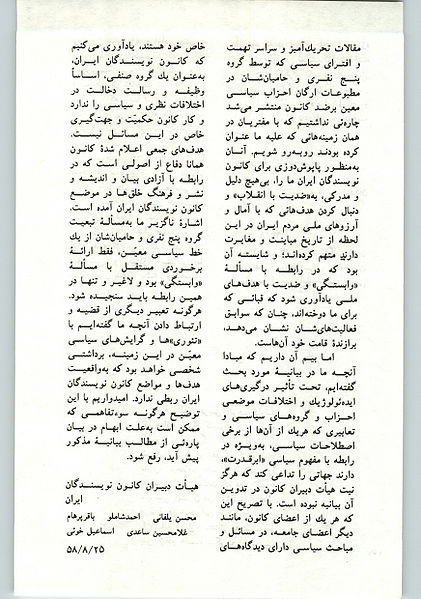 مقالات تحریک‌آمیز و سراسر تهمت
و افترای سیاسی که توسط گروه
پنج نفری و حامیان‌شان در
مطبوعات ارگان احزاب سیاسی
معین برضد کانون منتشر می‌شد
چاره‌ئی نداشتیم که با مفتریان در
همان زمینه‌هائی که علیه ما عنوان
کرده بودند روبه‌رو شویم. آنان
به‌منظور پاپوش‌دوزی برای کانون
نویسندگان ایران ما را، بی‌هیچ دلیل
و مدرکی، به‌«ضدیت با انقلاب» و
دنبال کردن هدف‌هائی که با آمال و
آرزوهای ملی مردم ایران در این
لحظه از تاریخ مباینت و مغایرت
دارند متهم کرده‌اند؛ و شایسته آن
بود که در رابطه با مسألهٔ
«وابستگی» و ضدیت با هدف‌های
ملی یادآوری شود که قبائی که
برای ما دوخته‌اند، چنان که سوابق
فعالیت‌های‌شان نشان می‌دهد،
برازندهٔ قامت خود آن‌هاست.
اما بیم آن داریم که مبادا
آنچه ما در بیانیهٔ مورد بحث
گفته‌ایم، تحت تأثیر درگیری‌های
ایده‌ئولوژیك و اختلافات موضعی
احزاب و گروه‌های سیاسی و
تعابیری که هریك از آن‌ها از برخی
اصطلاحات سیاسی، به‌ویژه در
رابطه با مفهوم سیاسی «ابرقدرت»،
دارند جهاتی را تداعی کند که هرگز
نیت هیأت دبیران کانون در تدوین
آن بیانیه نبوده است. با تصریح این
که هر یك از اعضای کانون، مانند
دیگر اعضای جامعه، در مسائل و
مباحث سیاسی دارای دیدگاه‌های
خاص خود هستند، یادآوری می‌کنیم
که کانون نویسندگان ایران،
به‌عنوان یك گروه صنفی، اساساً
وظیفه و رسالت دخالت در
اختلافات نظری و سیاسی را ندارد
و کار کانون حکمیّت و جهت‌گیری
خاص در این مسائل نیست.
هدف‌های جمعی اعلام شدهٔ کانون
همانا دفاع از اصولی است که در
رابطه با آزادی بیان و اندیشه و
نشر و فرهنگ خلق‌ها در موضع
کانون نویسندگان ایران آمده است.
اشارهٔ ناگزیر ما به‌مسألهٔ تبعیت
گروه پنج نفری و حامیان‌شان از یك
خط سیاسی معیّن، فقط ارائهٔ
برخوردی مستقل با مسألهٔ
«وابستگی» بود و لاغیر و تنها در
همین رابطه باید سنجیده شود.
هرگونه تعبیر دیگری از قضیه و
ارتباط دادن آنچه ما گفته‌ایم با
«تئوری»ها و گرایش‌های سیاسی
معیّن در این زمینه، برداشتی
شخصی خواهد بود که به‌واقعیت
هدف‌ها و مواضع کانون نویسندگان
ایران ربطی ندارد. امیدواریم با این
توضیح هرگونه سوءتفاهمی که
ممکن است به‌علت ابهام در بیان
پاره‌ئی از مطالب بیانیهٔ مذکور
پیش آید، رفع شود.
هیأت دبیران کانون نویسندگان
ایران
محسن یلفانی احمدشاملو باقرپرهام
غلامحسین ساعدی اسماعیل خوئی
۵۸/۸/۲۵